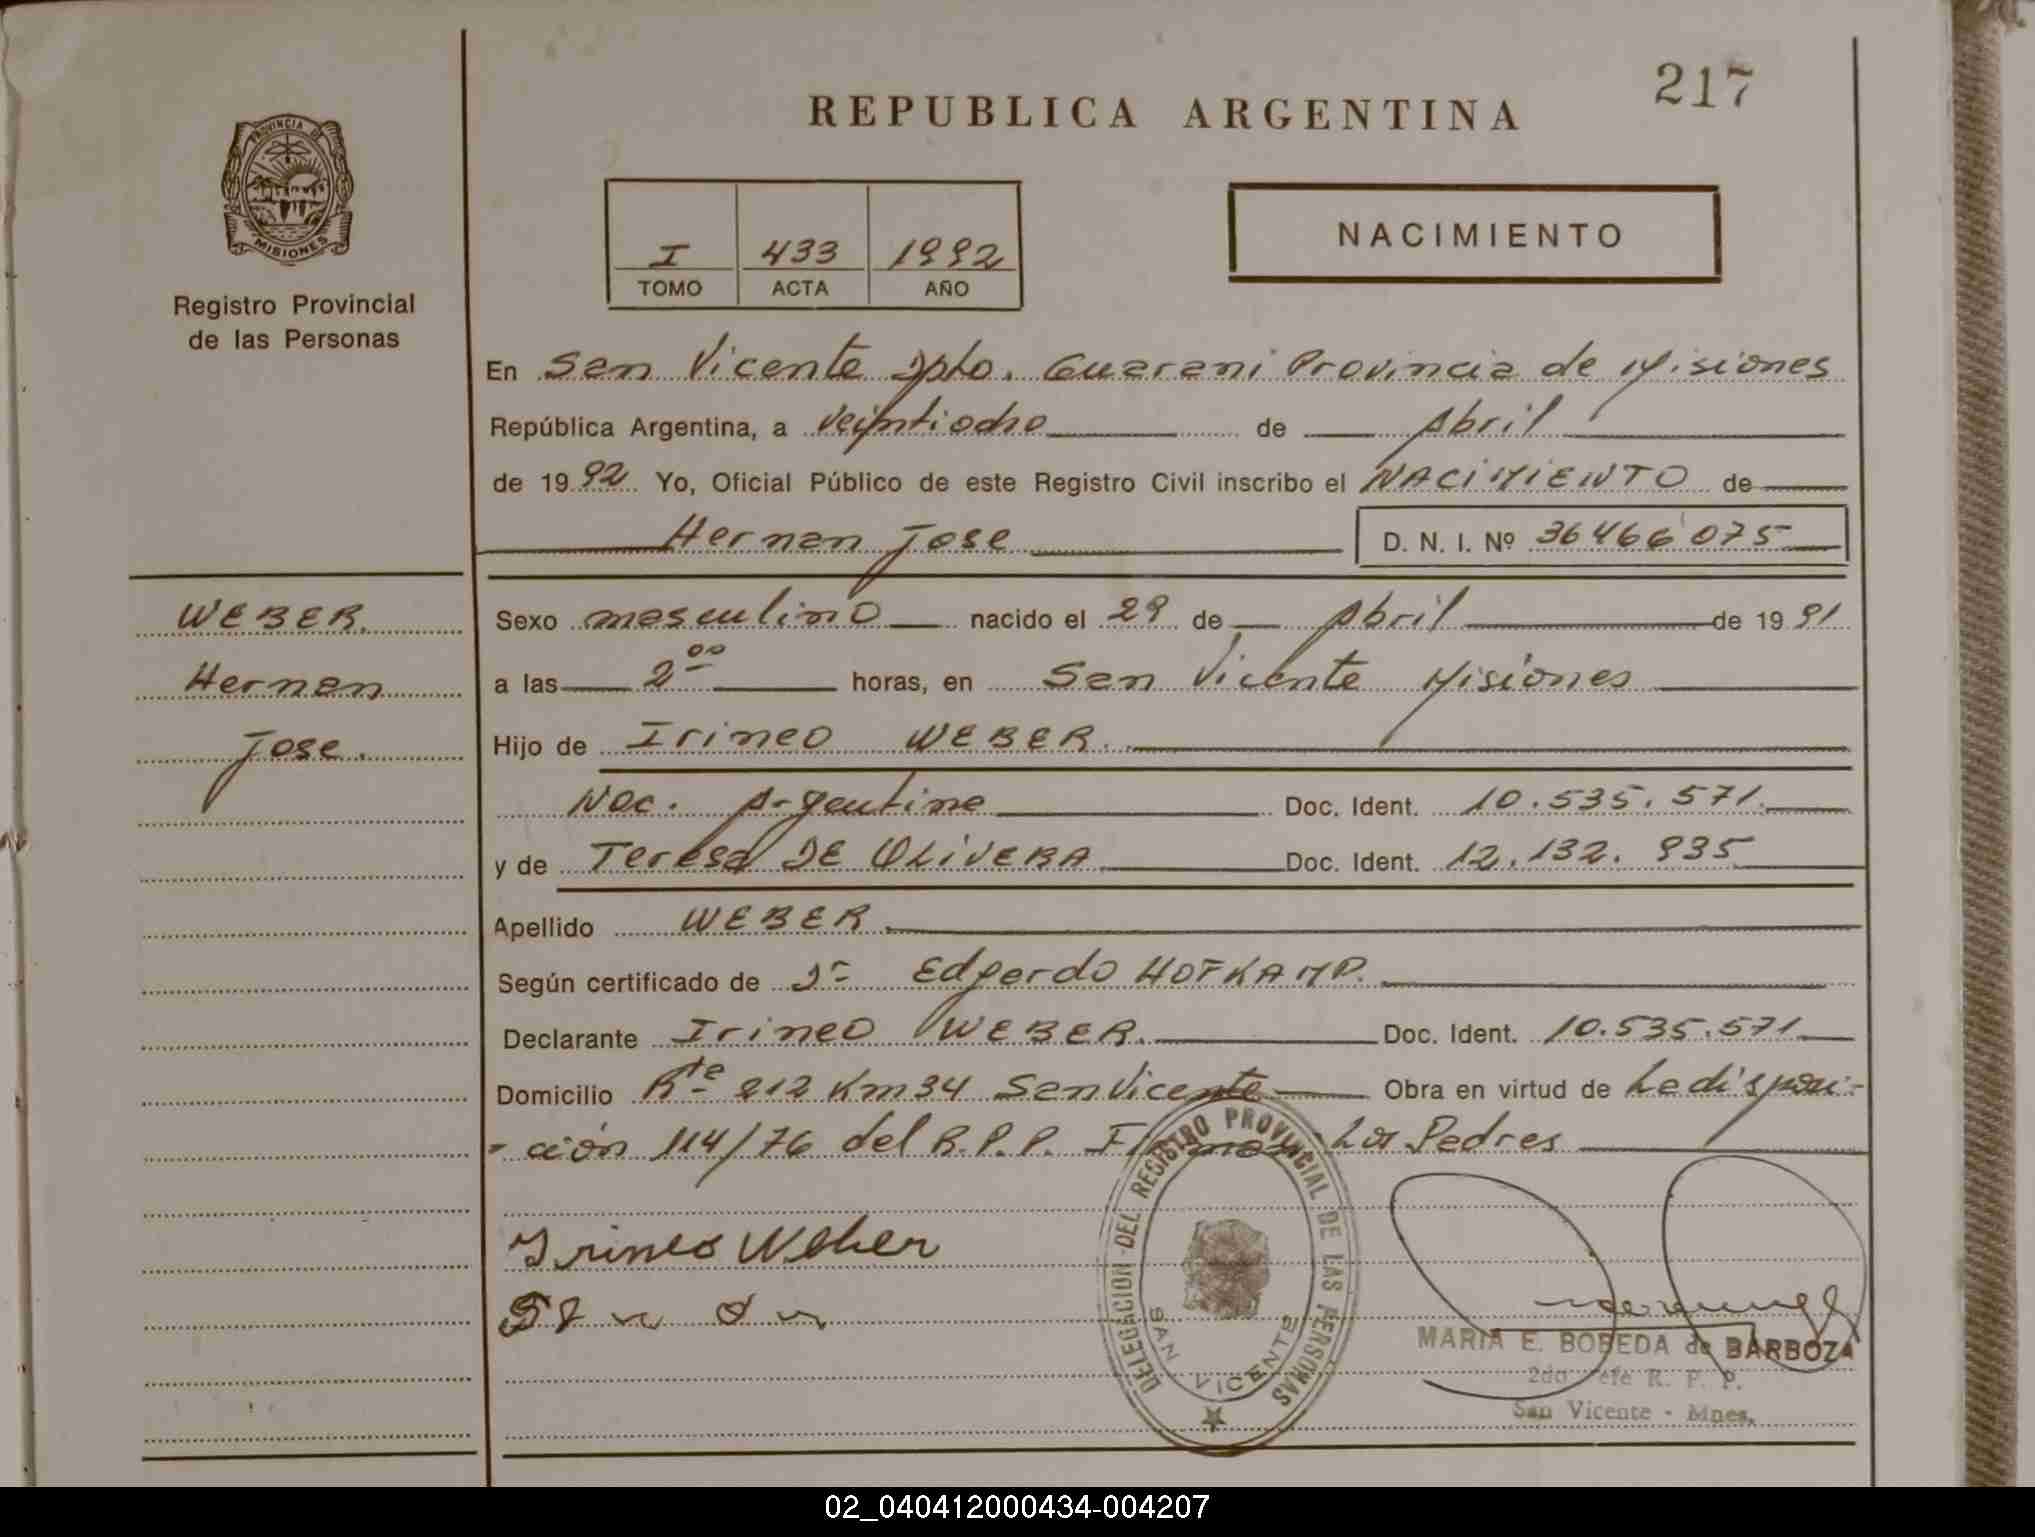 217
REPUBLICA ARGENTINA
PROVINCIA DE
MISIONES
Registro Provincial
de las Personas
I 433 1992
TOMO ACTA AÑO
NACIMIENTO
En San Vicente Dpto. Guarani Provincia de Misiones
República Argentina, a veintiocho de Abril
de 1992 Yo, Oficial Público de este Registro Civil inscribo el NACIMIENTO de
Hernan Jose D. N. I. Nº 36466075
WEBER
Hernan
Jose.
Sexo masculino nacido el 29 de Abril de 1991
a las 2 00 horas, en San Vicente Misiones
Hijo de Irineo WEBER.
Nac. Argentina Doc. Ident. 10.535.571
y de Teresa DE OLIVERA Doc. Ident. 12.132.935
Apellido WEBER
Según certificado de Dr Edgardo HOFKAMP.
Declarante Irineo WEBER. Doc. Ident. 10.535.571
Domicilio Rta 212 Km 34 San Vicente Obra en virtud de La disposi-
-ción 114/76 del R.P.P. Los Padres
Irineo Weber
DELEGACION DEL REGISTRO PROVINCIAL DE LAS PERSONAS
SAN VICENTE
MARIA E. BOBEDA de BARBOZA
2do Jefe R. P. P.
San Vicente - Mnes.
02_040412000434-004207